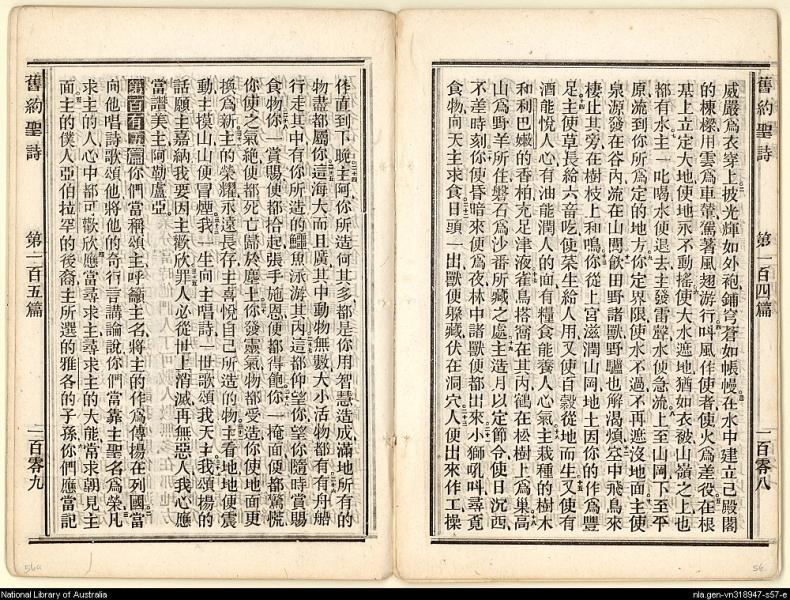 舊約聖詩 第一百四篇 一百零八
威嚴爲衣穿上披光輝如外袍鋪穹蒼如帳幔在水中建立己殿閣
的棟樑用雲爲車輦駕著風翅游行叫風作使者使火爲差役在根
基上立定大地使地永不動搖使大水遮地猶如衣被山嶺之上也
都有水主一叱喝水便退去主發雷聲水便急流上至山岡下至平
原流到你所爲定的地方你定界限使水不過不再遮沒地面主使
泉源發在谷內流在山間飲田野諸獸野驢也解渴煩空中飛鳥來
棲止其旁在樹枝上和鳴你從上宮滋潤山岡地土因你的作爲豐
足主使草長給六畜吃使菜生給人用又使百穀從地而生又使有
酒能悅人心有油能潤人的面有糧食能養人心氣主栽種的樹木
和利巴嫩的香柏充足津液雀鳥搭窩在其內鶴在松樹上爲巢高
山爲野羊所住磐石爲沙番所藏之處主造月以定節令使日沉西
不差時刻你使昏暗來便爲夜林中諸獸便都出來小獅吼叫尋覓
食物向天主求食日頭一出獸便躲藏伏在洞穴人便出來作工操
作直到下晚主阿你所造何其多都是你用智慧造成滿地所有的
物盡都屬你這海大而且廣其中動物無數大小活物都有有舟船
行走其中有你所造的鱷魚泳游其內這都仰望你望你隨時賞賜
食物你一賞賜便都拾起張手施恩便都得飽你一掩面便都驚慌
你使之氣絕便都死亡歸於塵土你發靈氣物都受造你使地面更
換爲新主的榮耀永遠長存主喜悅自己所造的物主看地地便震
動主摸山山便冒煙我一生向主唱詩一世歌頌我天主我頌揚的
話願主嘉納我要因主歡欣罪人必從世上消滅再無惡人我心應
當讚美主阿勒盧亞
第一百有五篇 你們當稱頌主呼籲主名將主的作爲傳揚在列國當
向他唱詩歌頌他將他的奇行言講論說你們當靠主聖名爲榮凡
求主的人心中都可歡欣應當尋求主尋求主的大能當求朝見主
面主的僕人亞伯拉罕的後裔主所選的雅各的子孫你們應當記
舊約聖詩 第一百五篇 一百零九
56a
56
National Library of Australia
nla.gen-vn318947-s57-e